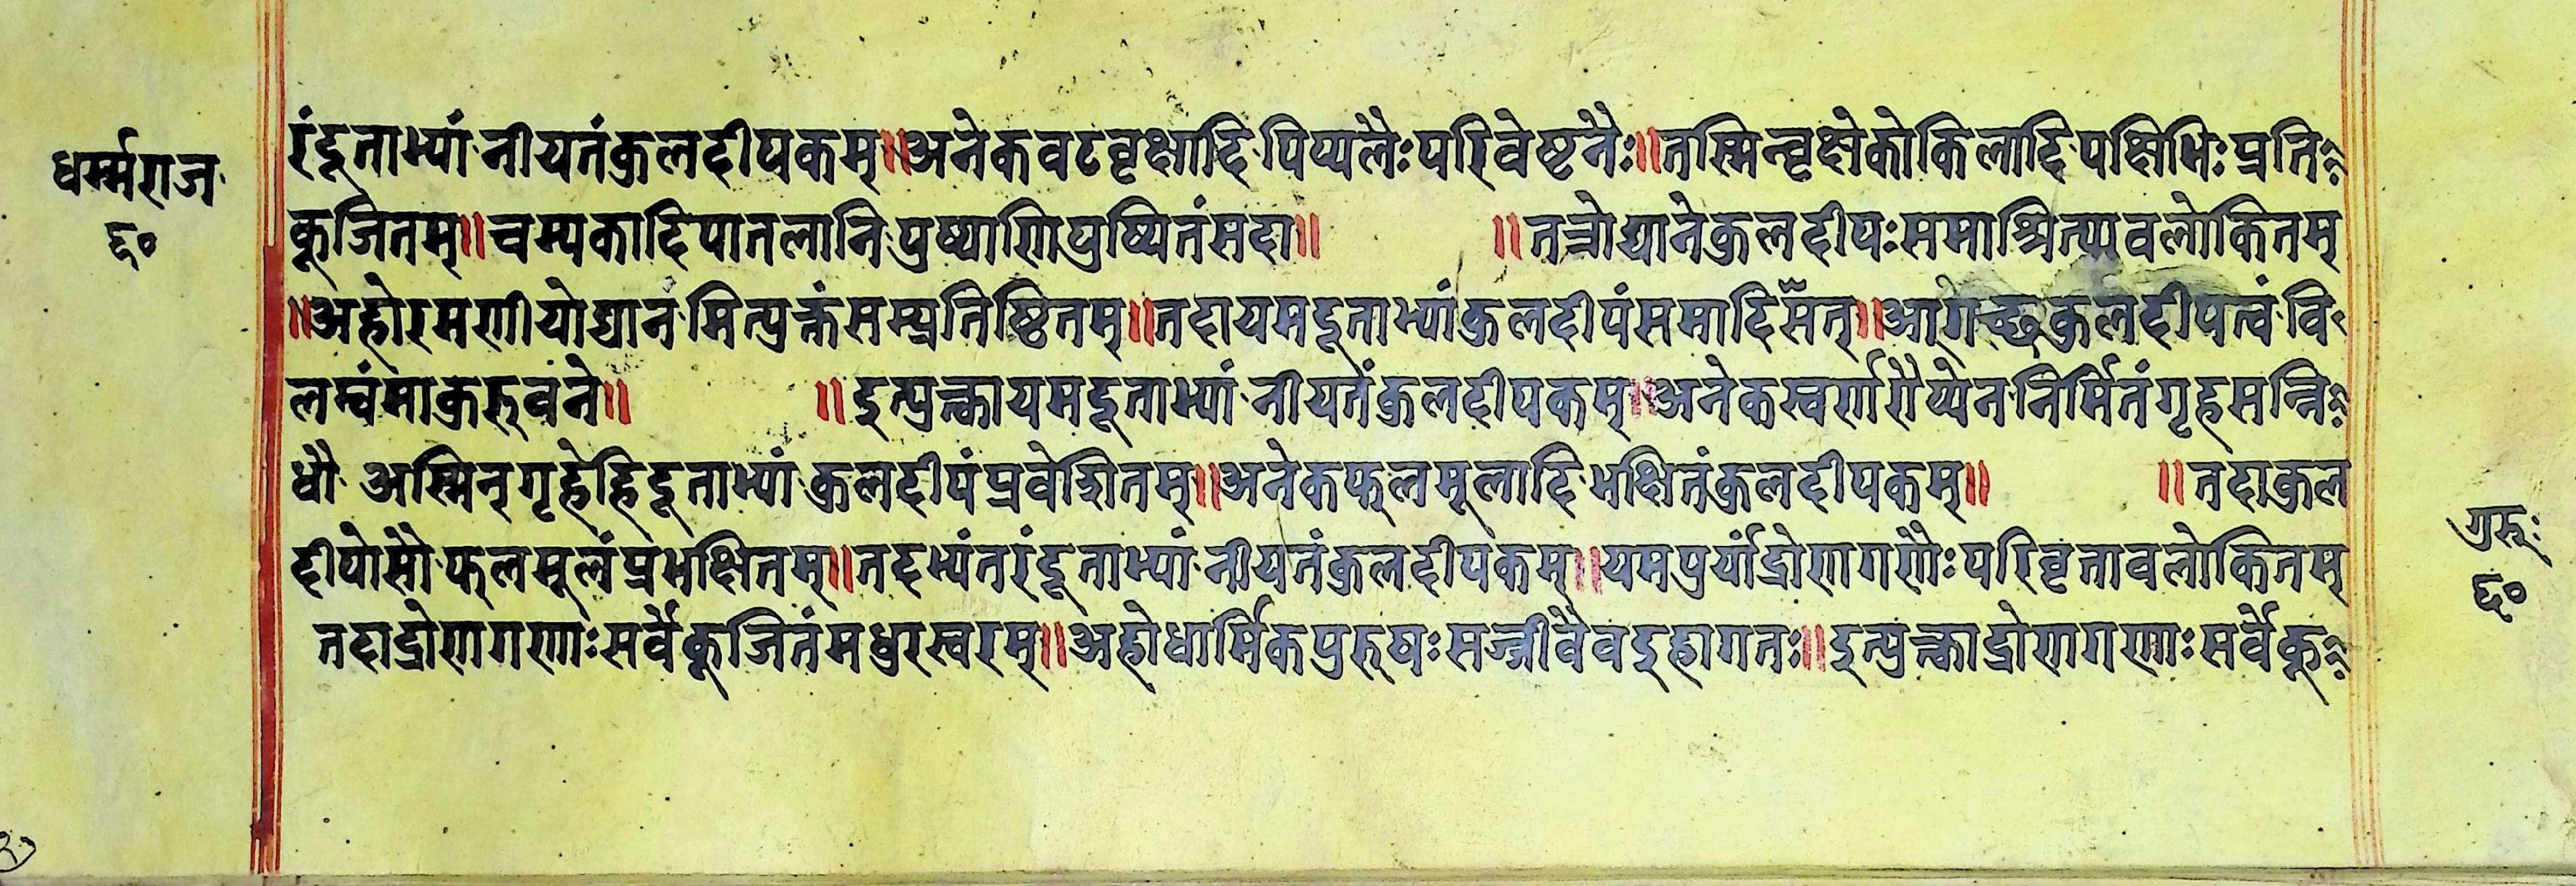 धर्म्मराज
६०
रंदूताभ्यां नीयतंकुलदीपकम्॥अनेकवटवृक्षादि पिप्पलैः परिवेष्टनैः॥तस्मिन्वृक्षेकोकिलादि पक्षिभिः प्रति
कूजितम्॥चम्पकादिपातलानि पुष्पाणि पुष्पितंसदा॥ ॥तत्रोद्यानेकुलदीपःसमाश्रित्यावलोकितम्
॥अहोरमणीयोद्यानमित्युक्तंसम्प्रतिष्ठितम्॥तदायमदूताभ्यांकुलदीपंसमादिसेत्॥आगच्छकुलदीपत्वं वि
लम्वंमाकुरुवने॥ ॥इत्युक्त्वायमदूताभ्यां नीयतंकुलदीपकम्॥अनेकस्वर्णरौप्येन निर्मितंगृहसन्नि
धौ अस्मिन्गृहेहिदूताभ्यां कुलदीपंप्रवेशितम्॥अनेकफलमूलादि भक्षितंकुलदीपकम्॥ ॥तदाकुल
दीपोसौ फलमूलंप्रभक्षितम्॥तदभ्यंतरंदूताभ्यां नीयतंकुलदीपकम्॥यमपुर्यांद्रोणगणैः परिवृतावलोकितम्
तदाद्रोणगणाःसर्वेकूजितंमधुरस्वरम्॥अहोधार्मिकपुरुषःसज्जीवैवइहागतः॥इत्युक्त्वाद्रोणगणाःसर्वेकू
गुरुः
६०